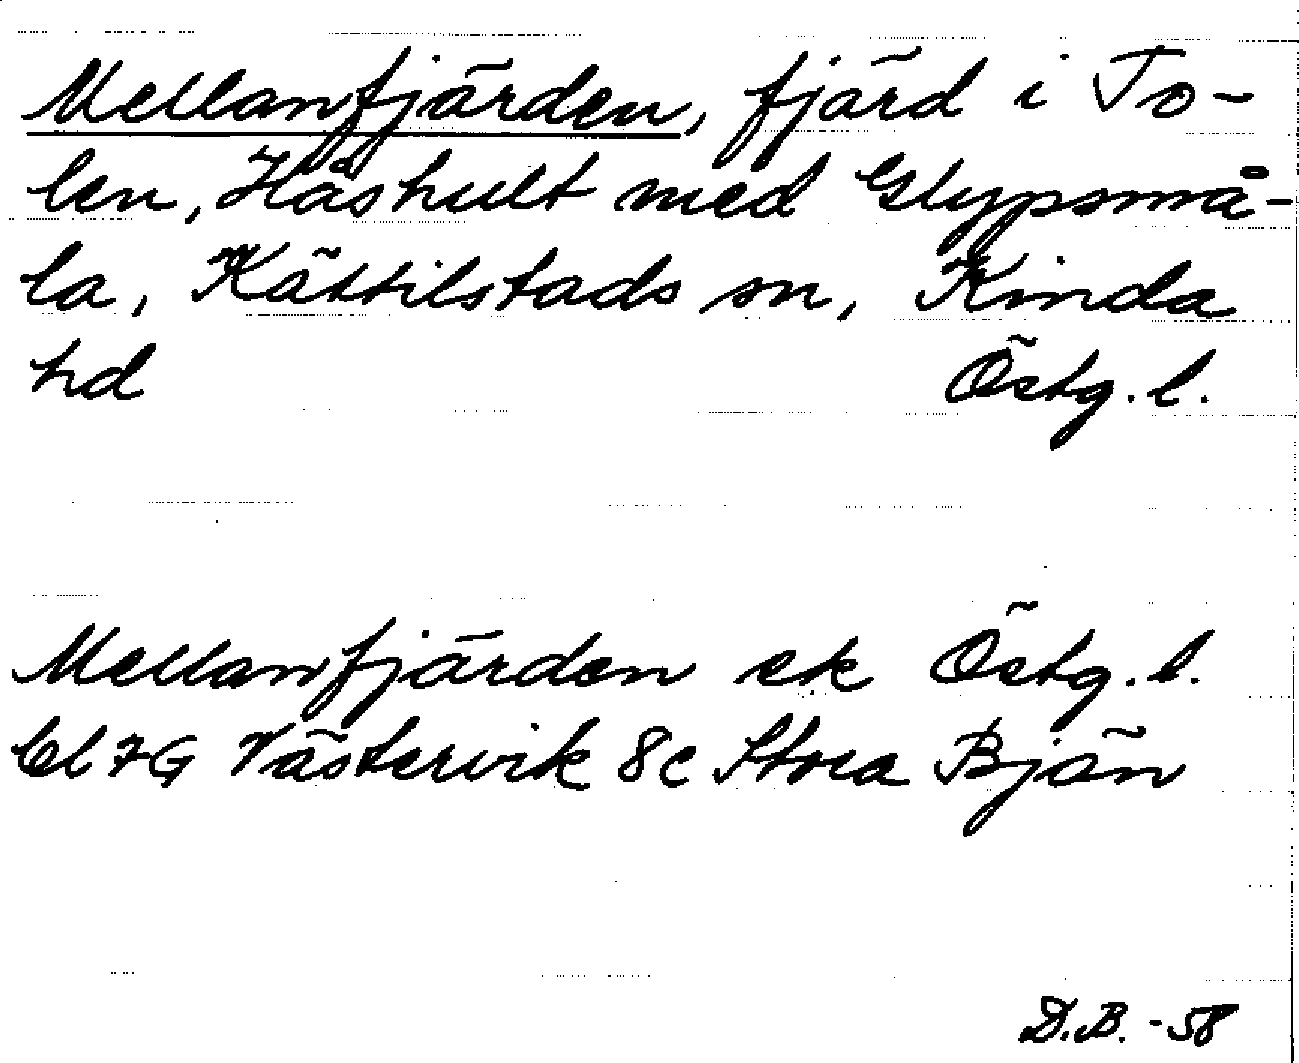 Mellanfjärden, fjärd i To-
len, Håshult med Glypsmå-
la, Kättilstads sn, Kinda
hd Östg. l.
Mellanfjärden ek Östg. l.
bl 7G Västervik 8c Stora Bjän
D.B. -58